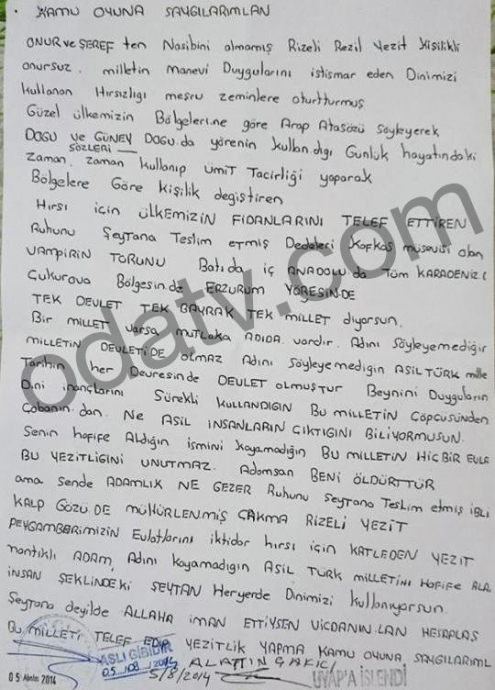 KAMU OYUNA SAYGILARIMLAN
ONUR ve ŞEREF ten Nasibini almamış Rizeli Rezil Yezit kişilikli
onursuz, milletin Manevi Duygularını istismar eden Dinimizi
kullanan Hırsızlığı meşru zeminlere oturtturmuş
Güzel ülkemizin Bölgelerine göre Arap Atasözü Söyleyerek
DOGU ve GÜNEY DOGU.da yörenin kullandıgı Günlük hayatındaki
SÖZLERİ
zaman, zaman kullanıp ümit Tacirliği yaparak
Bölgelere Göre kişilik degiştiren
Hırsı için ÜLKEMİZİN FİDANLARINI TELEF ETTİREN
Ruhunu Şeytana Teslim etmiş Dedeleri Kafkas musevisi olan
VAMPİRİN TORUNU Batıda iç ANADOLU da Tüm KARADENİZ
Çukurova Bölgesinde ERZURUM YÖRESİNDE
TEK DEVLET TEK BAYRAK TEK MİLLET diyorsun.
Bir MİLLET varsa mutlaka ADIDA vardır. Adını Söyleyemediğir
MİLLETİN DEVLETİ DE OLMAZ Adını Söyleyemedigin ASİL TÜRK mille
Tarihin her Devresinde DEVLET olmuştur Beynini Duyguların
Dini inançlarını Sürekli KULLANDIGIN BU MİLLETİN ÇÖPÇÜSÜNDEN
Çobanın.dan. Ne ASİL İNSANLARIN ÇIKTIGINI BİLİYORMUSUN.
Senin hafife Aldığın ismini koyamadığın BU MİLLETİN HİÇ BİR EVLA
BU YEZİTLİGİNİ UNUTMAZ. Adamsan BENİ ÖLDÜRTTÜR
ama Sende ADAMLIK NE GEZER Ruhunu Şeytana Teslim etmiş
KALP GÖZÜ DE MÜHÜRLENMİŞ ÇAKMA RİZELİ YEZİT
PEYGAMBERİMİZİN Evlatlarını iktidar hırsı için KATLEDEN YEZİT
mantıklı ADAM, Adını koyamadıgın ASİL TÜRK MİLLETİNİ HAFİFE ALA
İNSAN ŞEKLİNDEKİ ŞEYTAN Heryerde Dinimizi kullanıyorsun.
Şeytana deyilde ALLAHA iMAN ETTİYSEN VİCDANIN.LAN HESAPLAŞ
BU MİLLETİ TELEF EDİP YEZİTLİK YAPMA KAMU OYUNA SAYGILARIML
ALAATTİN ÇAKICI
5/8/2014
ASLI GİBİDİR
05.08./2014
05 Ağustos 2014
UYAP'A İŞLENDİ
odatv.com